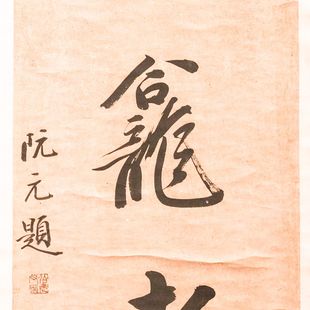 龕
阮元題